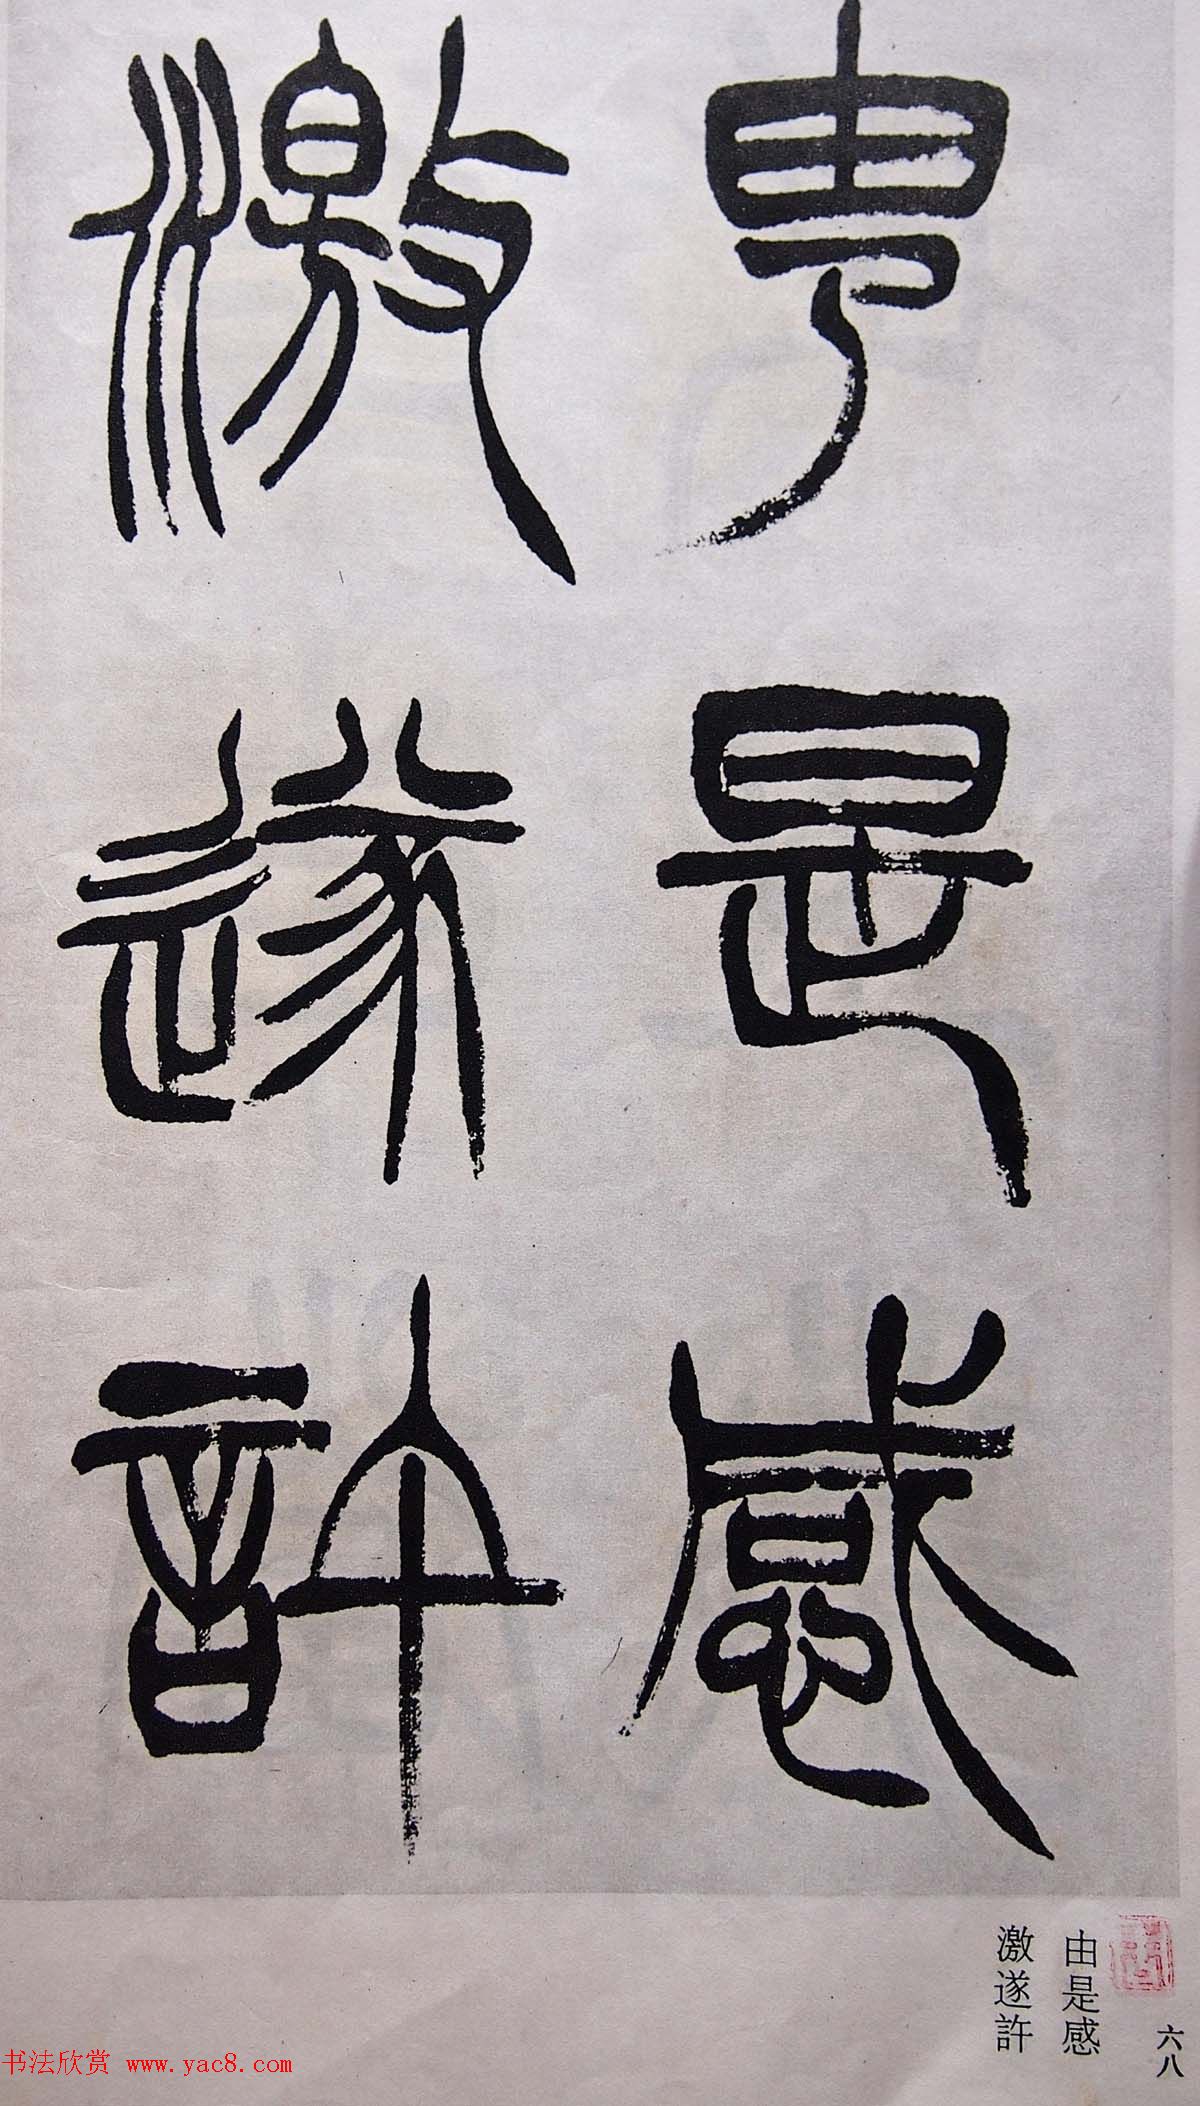 由是感
激遂許
由是感
激遂許
六八
书法欣赏 www.yac8.com